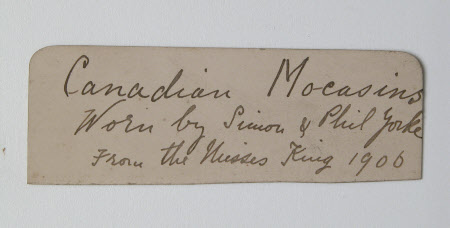 Canadian Mocasins
Worn by Simon & Phil Yorke
From the Misses King 1906